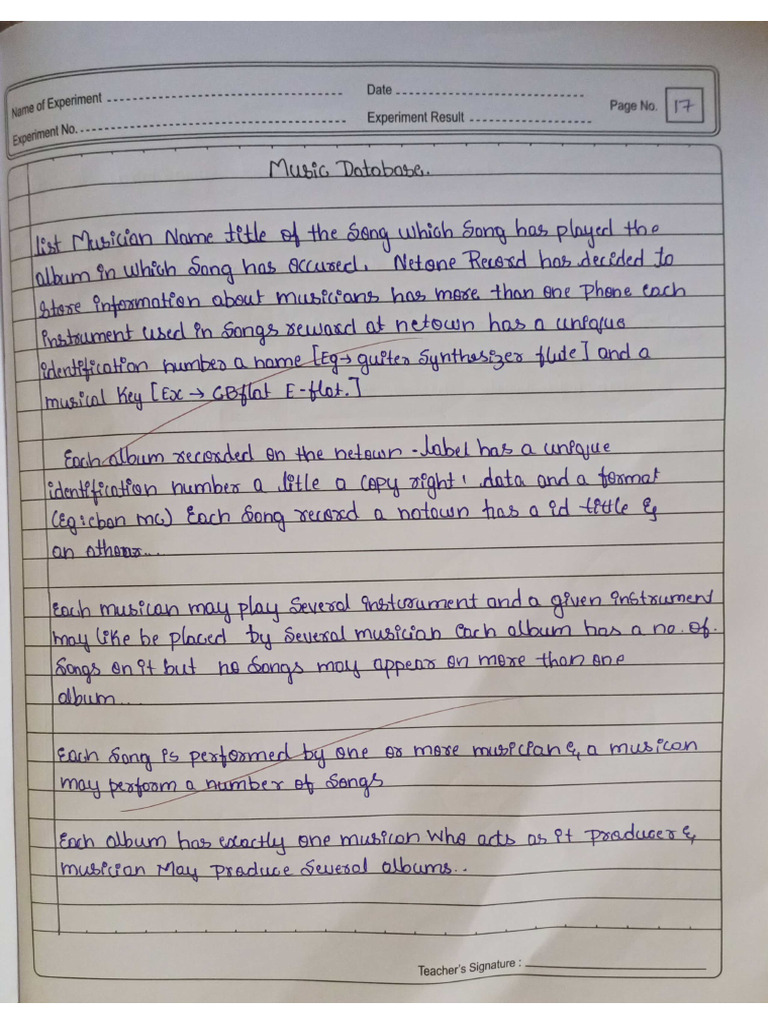 Name of Experiment
Date
Page No. 17
Experiment No.
Experiment Result
Music Database.
List Musician Name title of the Song which Song has played the
album in which Song has occured. Netone Record has decided to
Store information about musicians has more than one Phone each
instrument used in Songs reward at netown has a unique
identification number a name [Eg→ guiter Synthesizer flute] and a
musical Key [Ex → CBflat E-flat.]
Each album recorded on the netown - label has a unique
identification number a litle a copy right' data and a format
(Eg: cban mc) Each Song record a notown has a id tittle &
an
Each musican may play Several instrument and a given instrument
may like be placed by Several musician Each album has a no. of.
Songs on it but no Songs may appear on more than one
album...
Each Song is performed by one or more musician & a musican
may perform a number of Songs
Each album has exactly one musican who acts as it Producer &
musician May Produce Several albums..
Teacher's Signature :